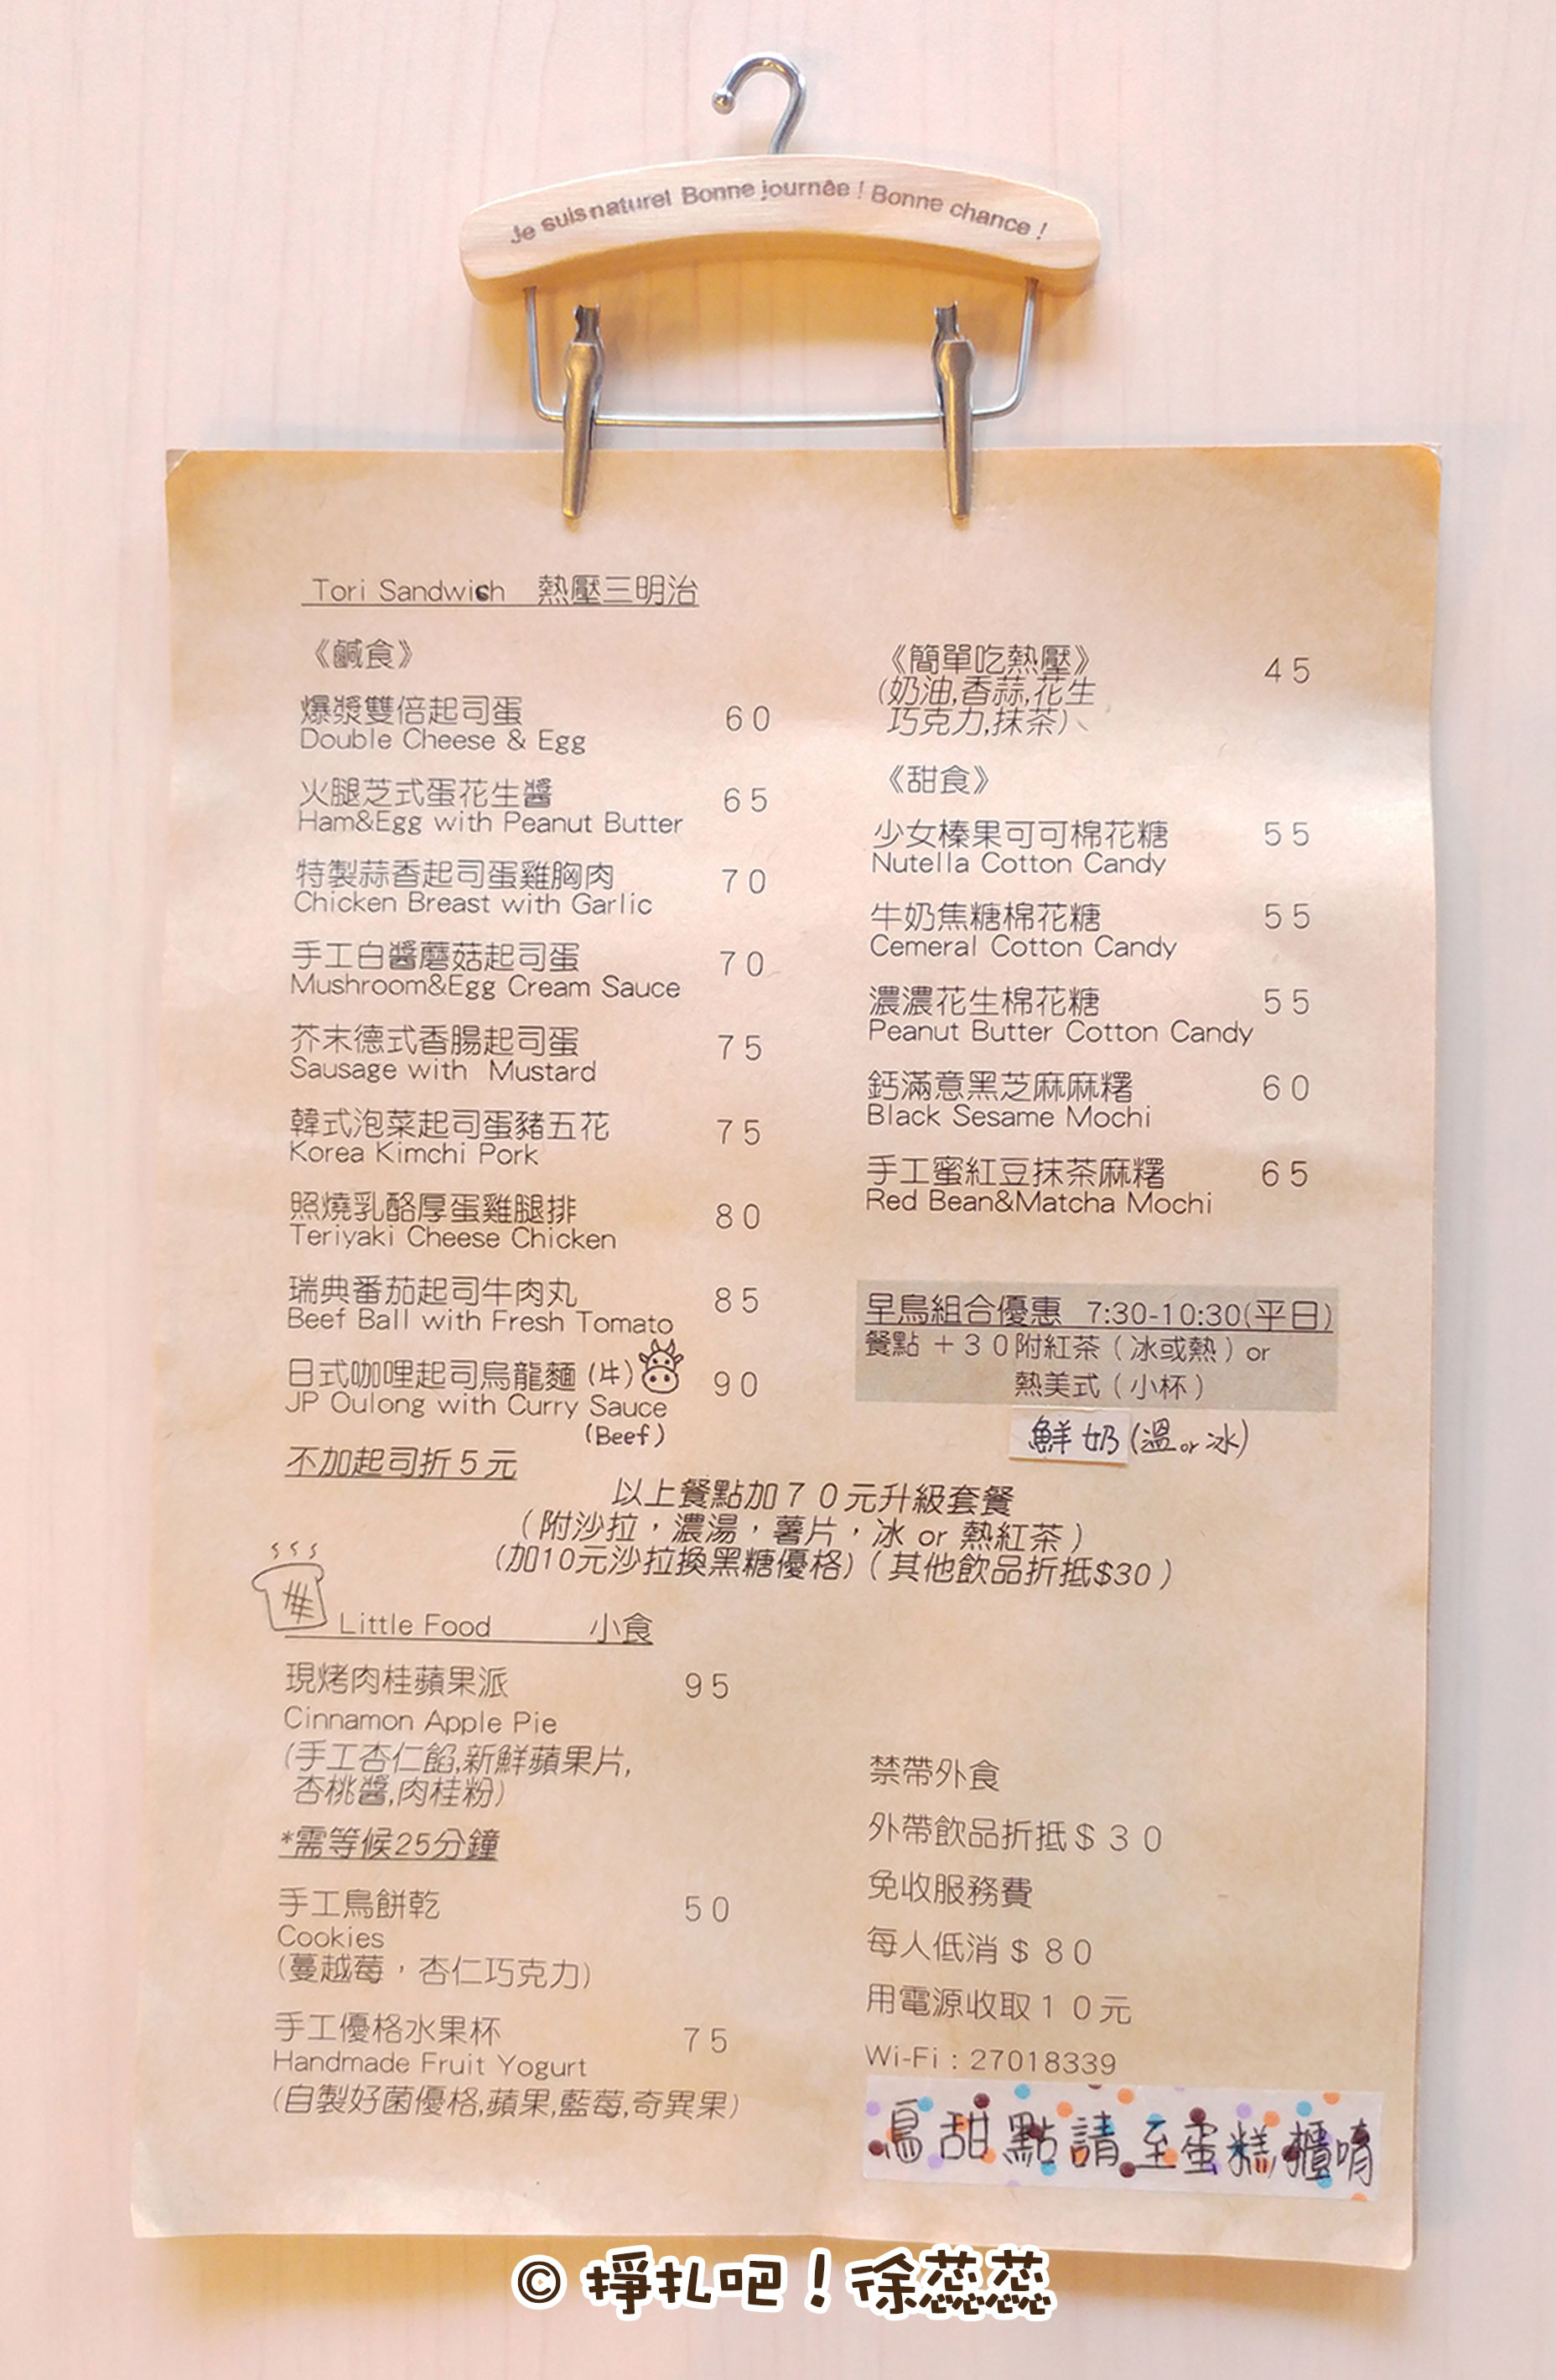 Je suis naturel Bonne journée ! Bonne chance !
Tori Sandwich 熱壓三明治
《鹹食》
爆漿雙倍起司蛋 60
Double Cheese & Egg
火腿芝式蛋花生醬 65
Ham&Egg with Peanut Butter
特製蒜香起司蛋雞胸肉 70
Chicken Breast with Garlic
手工白醬蘑菇起司蛋 70
Mushroom&Egg Cream Sauce
芥末德式香腸起司蛋 75
Sausage with Mustard
韓式泡菜起司蛋豬五花 75
Korea Kimchi Pork
照燒乳酪厚蛋雞腿排 80
Teriyaki Cheese Chicken
瑞典番茄起司牛肉丸 85
Beef Ball with Fresh Tomato
日式咖哩起司烏龍麵 (牛) 90
JP Oulong with Curry Sauce
(Beef)
不加起司折5元
《簡單吃熱壓》 45
(奶油,香蒜,花生
巧克力,抹茶)、
《甜食》
少女榛果可可棉花糖 55
Nutella Cotton Candy
牛奶焦糖棉花糖 55
Cemeral Cotton Candy
濃濃花生棉花糖 55
Peanut Butter Cotton Candy
鈣滿意黑芝麻麻糬 60
Black Sesame Mochi
手工蜜紅豆抹茶麻糬 65
Red Bean&Matcha Mochi
早鳥組合優惠 7:30-10:30(平日)
餐點＋30附紅茶（冰或熱）or
熱美式（小杯）
鮮奶(溫or冰)
以上餐點加70元升級套餐
（附沙拉，濃湯，薯片，冰 or 熱紅茶）
(加10元沙拉換黑糖優格)（其他飲品折抵$30）
Little Food 小食
現烤肉桂蘋果派 95
Cinnamon Apple Pie
(手工杏仁餡,新鮮蘋果片,
杏桃醬,肉桂粉)
*需等候25分鐘
手工鳥餅乾 50
Cookies
(蔓越莓，杏仁巧克力)
手工優格水果杯 75
Handmade Fruit Yogurt
(自製好菌優格,蘋果,藍莓,奇異果)
禁帶外食
外帶飲品折抵＄30
免收服務費
每人低消＄80
用電源收取10元
Wi-Fi : 27018339
鳥甜點請至蛋糕櫃唷
© 掙扎吧！徐蕊蕊